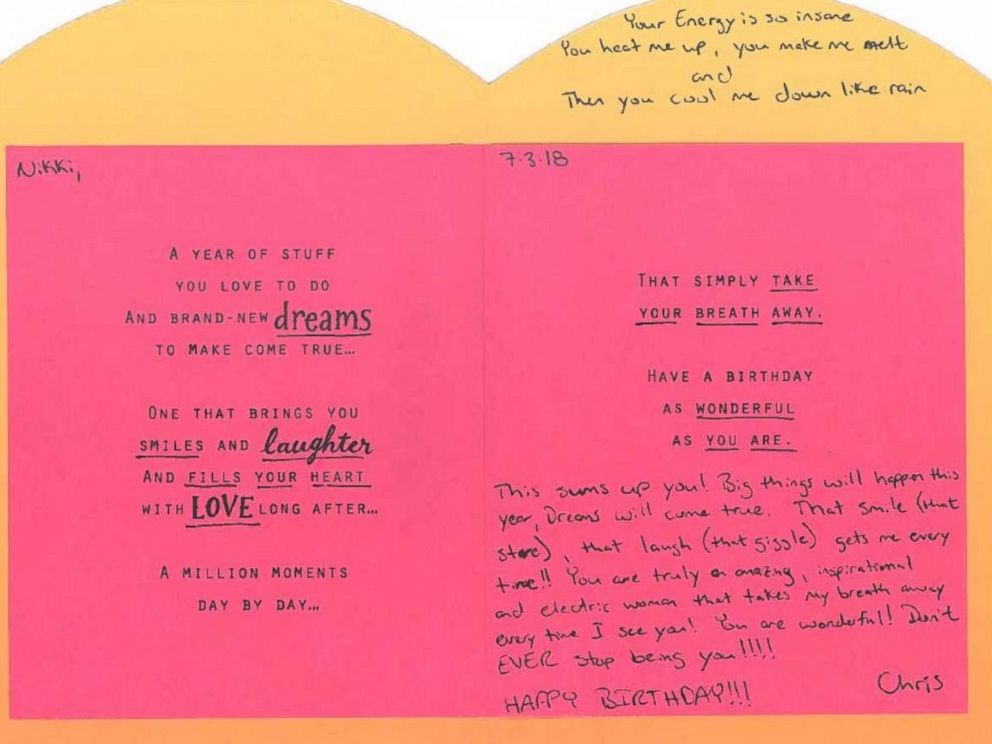 Your Energy is so insane
You heat me up, you make me melt
and
Then you cool me down like rain
Nikki,
A YEAR OF STUFF
YOU LOVE TO DO
AND BRAND-NEW dreams
TO MAKE COME TRUE...
ONE THAT BRINGS YOU
SMILES AND laughter
AND FILLS YOUR HEART
WITH LOVE LONG AFTER...
A MILLION MOMENTS
DAY BY DAY...
7.3.18
THAT SIMPLY TAKE
YOUR BREATH AWAY.
HAVE A BIRTHDAY
AS WONDERFUL
AS YOU ARE.
This sums up you! Big things will happen this
year, Dreams will come true. That smile (that
stare), that laugh (that giggle) gets me every
time!! You are truly an amazing, inspirational
and electric woman that takes my breath away
every time I see you! You are wonderful! Don't
EVER stop being you!!!!
HAPPY BIRTHDAY!!!
Chris